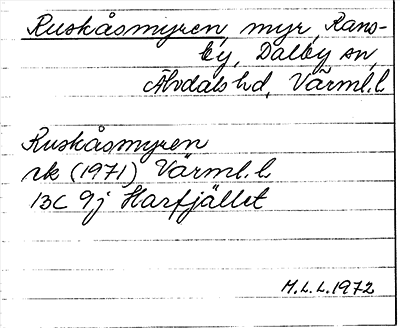 Ruskåsmyren, myr, Rans-
by, Dalby sn,
Älvdals hd, Värml. l.
Ruskåsmyren
rk (1971) Värml. l.
13C 9j Harfjället
M.L.L. 1972